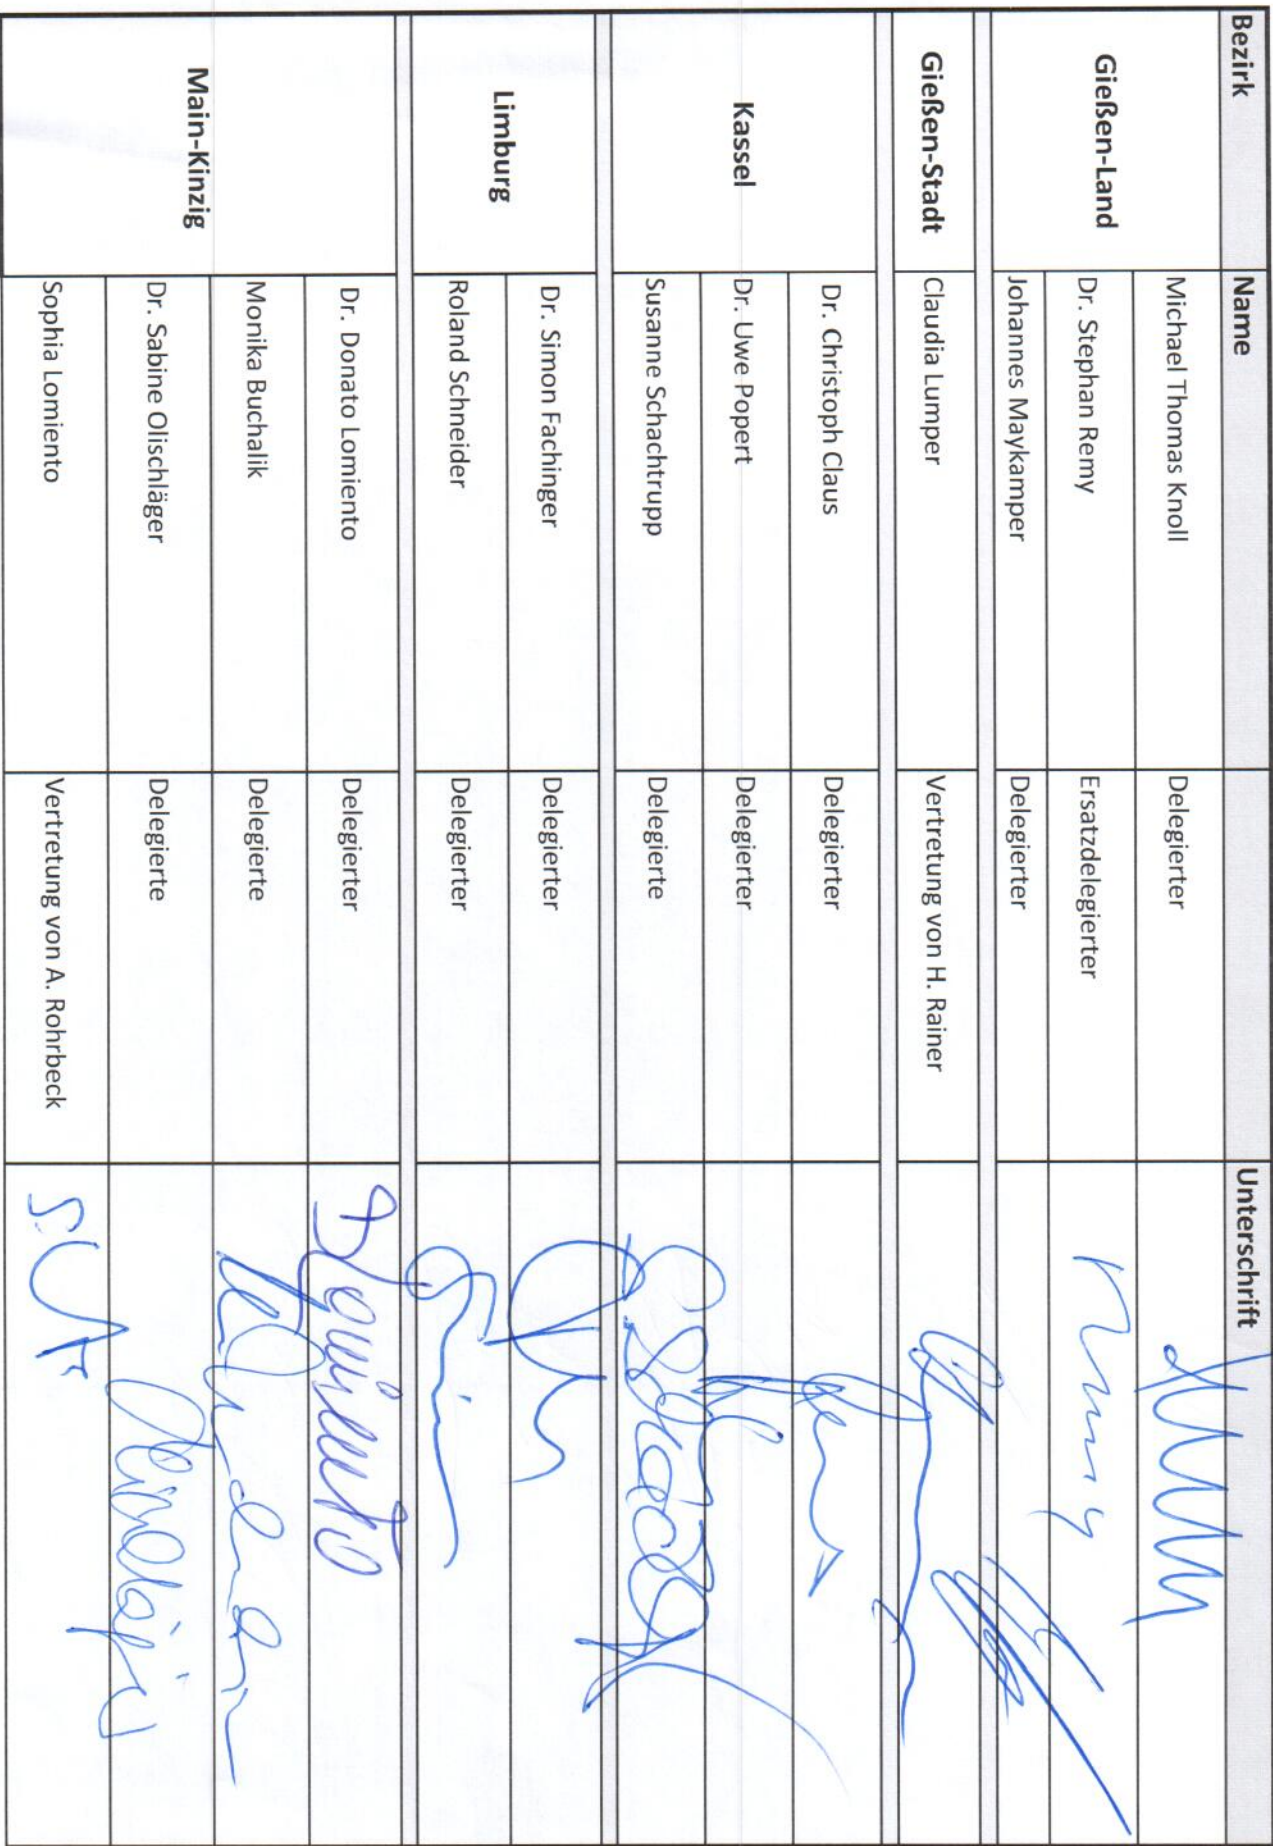 Bezirk Name Unterschrift
Gießen-Land
Michael Thomas Knoll Delegierter
Dr. Stephan Remy Ersatzdelegierter
Johannes Maykamper Delegierter
Gießen-Stadt Claudia Lumper Vertretung von H. Rainer
Kassel
Dr. Christoph Claus Delegierter
Dr. Uwe Popert Delegierter
Susanne Schachtrupp Delegierte
Limburg
Dr. Simon Fachinger Delegierter
Roland Schneider Delegierter
Main-Kinzig
Dr. Donato Lomiento Delegierter
Monika Buchalik Delegierte
Dr. Sabine Olischläger Delegierte
Sophia Lomiento Vertretung von A. Rohrbeck